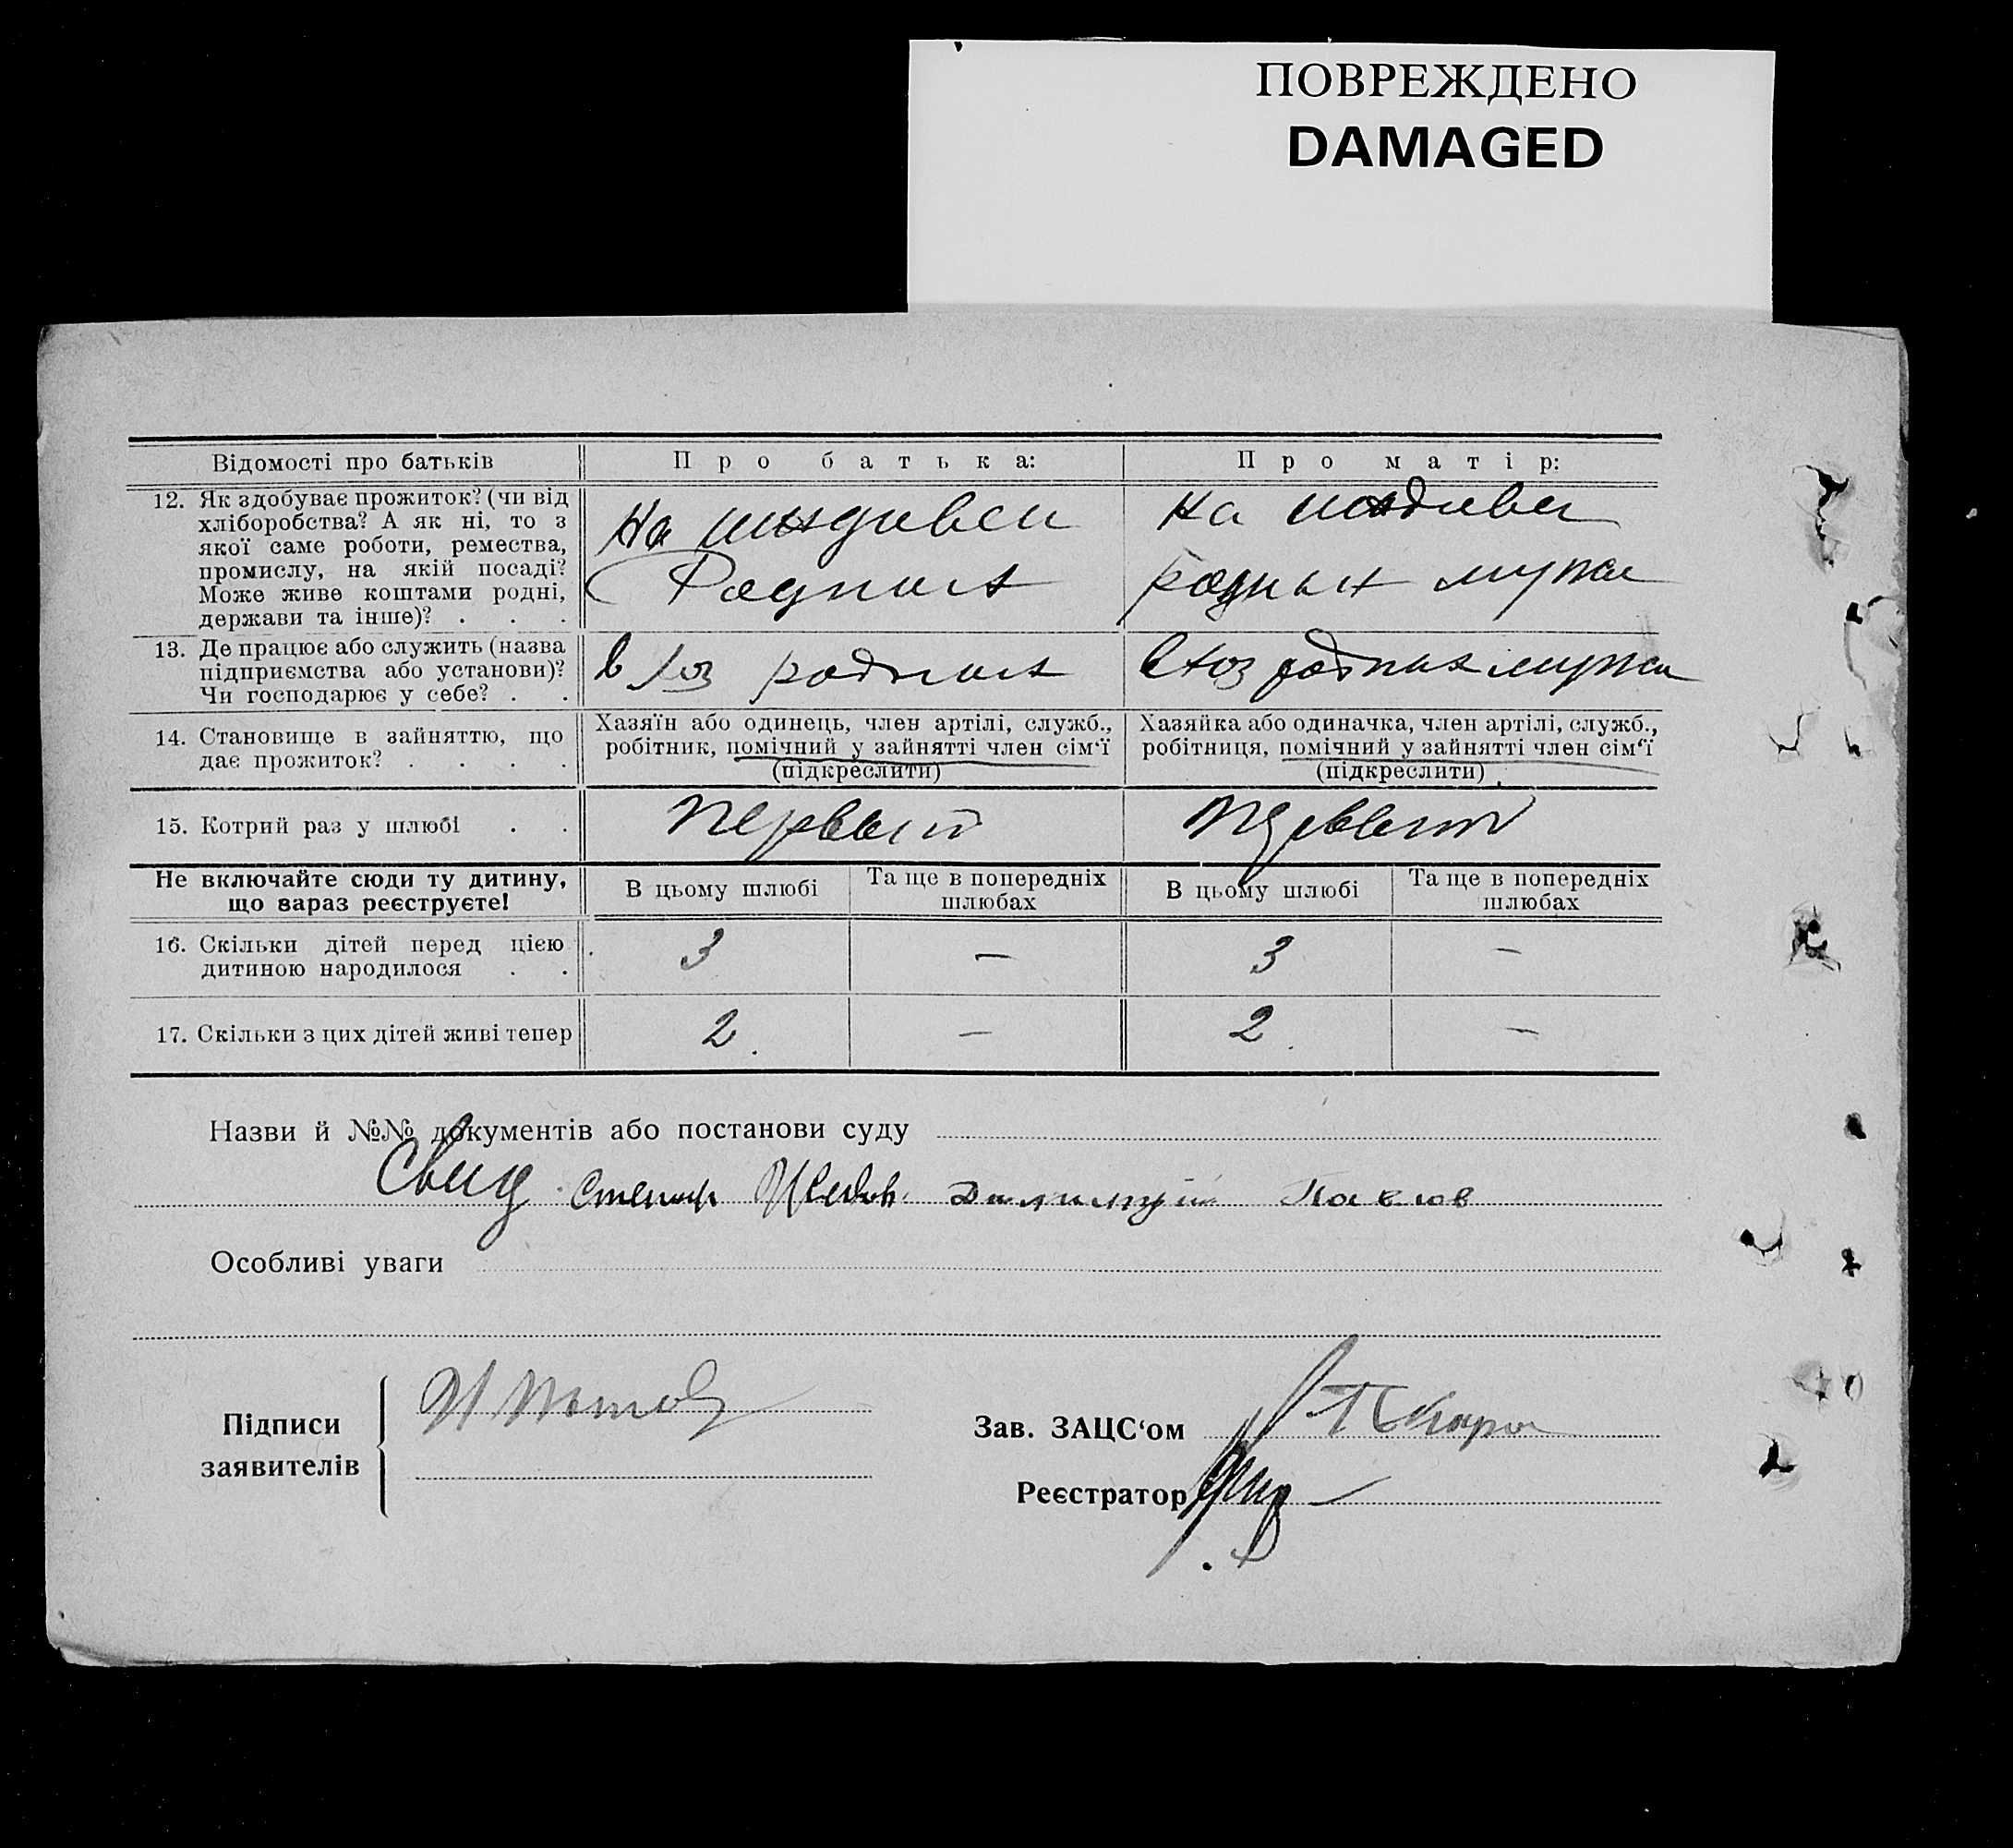 ПОВРЕЖДЕНО
DAMAGED
Відомості про батьків
Про батька:
Про матір:
12. Як здобуває прожиток? (чи від
хліборобства? А як ні, то з
якої саме роботи, ремества,
промислу, на якій посаді?
Може живе коштами родні,
держави та інше)? . . .
На иждивен
Родных
на иждивен
родных мужа
13. Де працює або служить (назва
підприємства або установи)?
Чи господарює у себе? . .
в хоз родных
в хоз родных мужа
14. Становище в зайняттю, що
дає прожиток? . . . .
Хазяїн або одинець, член артілі, служб.,
робітник, помічний у зайнятті член сім‘ї
(підкреслити)
Хазяйка або одиначка, член артілі, служб.,
робітниця, помічний у зайнятті член сім‘ї
(підкреслити)
15. Котрий раз у шлюбі . .
первый
первый
Не включайте сюди ту дитину,
що зараз реєструєте!
В цьому шлюбі
Та ще в попередніх
шлюбах
В цьому шлюбі
Та ще в попередніх
шлюбах
16. Скільки дітей перед цією
дитиною народилося . .
3 — 3 —
17. Скільки з цих дітей живі тепер
2 — 2 —
Назви й №№ документів або постанови суду
Свид Павлов
Особливі уваги
Підписи
заявителів
Зав. ЗАЦС‘ом
Реєстратор